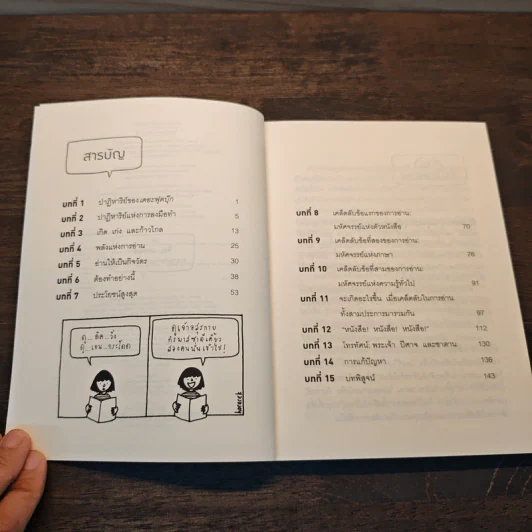 สารบัญ
บทที่ 1 ปาฏิหาริย์ของเคอะฟุตบุ๊ก 1
บทที่ 2 ปาฏิหาริย์แห่งการลงมือทำ 5
บทที่ 3 เกิด เก่ง และก้าวไกล 13
บทที่ 4 พลังแห่งการอ่าน 25
บทที่ 5 อ่านให้เป็นกิจวัตร 30
บทที่ 6 ต้องทำอย่างนี้ 38
บทที่ 7 ประโยชน์สูงสุด 53
บทที่ 8 เคล็ดลับข้อแรกของการอ่าน:
มหัศจรรย์แห่งตัวหนังสือ 70
บทที่ 9 เคล็ดลับข้อที่สองของการอ่าน:
มหัศจรรย์แห่งภาษา 76
บทที่ 10 เคล็ดลับข้อที่สามของการอ่าน:
มหัศจรรย์แห่งความรู้ทั่วไป 91
บทที่ 11 จะเกิดอะไรขึ้น เมื่อเคล็ดลับในการอ่าน
ทั้งสามประการมารวมกัน 97
บทที่ 12 "หนังสือ! หนังสือ! หนังสือ!" 112
บทที่ 13 โทรทัศน์: พระเจ้า ปีศาจ และซาตาน 130
บทที่ 14 การแก้ปัญหา 136
บทที่ 15 บทพิสูจน์ 143